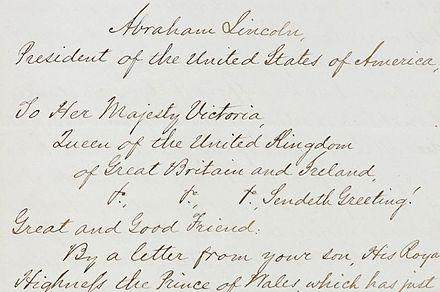 Abraham Lincoln,
President of the United States of America,
To Her Majesty Victoria,
Queen of the United Kingdom
of Great Britain and Ireland,
&c., &c., &c. Sendeth Greeting!
Great and Good Friend:
By a letter from your son, His Roya
Highness the Prince of Wales, which has just